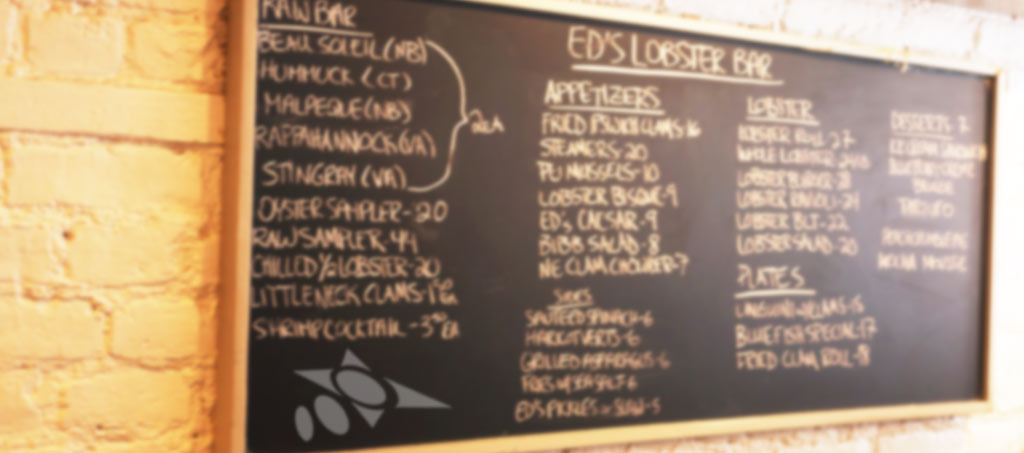 RAW BAR
BEAU SOLEIL (NB)
HUMMOCK (CT)
MALPEQUE (NB)
RAPPAHANNOCK (VA)
STINGRAY (VA)
2EA
OYSTER SAMPLER - 20
RAW SAMPLER - 44
CHILLED ½ LOBSTER - 20
LITTLENECK CLAMS -
SHRIMP COCKTAIL - 3 EA
ED'S LOBSTER BAR
APPETIZERS
FRIED IPSWICH CLAMS - 16
STEAMERS - 20
PEI MUSSELS - 10
LOBSTER BISQUE - 9
ED'S CAESAR - 9
BIBB SALAD - 8
NE CLAM CHOWDER - 7
SIDES
SAUTEED SPINACH - 6
HARICOT VERTS - 6
GRILLED ASPARAGUS - 6
FRIES W/ SEA SALT 6
ED'S PICKLES SLAW - 5
LOBSTER
LOBSTER ROLL - 27
WHOLE LOBSTER
LOBSTER BURGER
LOBSTER RAVIOLI - 24
LOBSTER BLT - 22
LOBSTER SALAD - 20
PLATES
LINGUINI W/ CLAMS - 15
BLUEFISH SPECIAL - 17
FRIED CLAM ROLL - 18
DESSERTS 7
TARTUFO